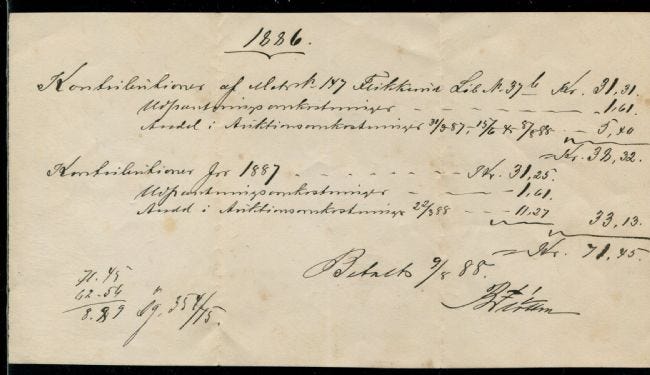 1886.
Kontributioner af Matr. № 147 Frikkenid Lib № 37 b Kr. 31,31.
Udpantningsomkostninger - - - - - - 1,61.
Andel i Auktionsomkostninger 88 - 5,40
= Kr. 38,32.
Kontributioner for 1887 - - - - - - Kr. 31,25.
Udpantningsomkostninger - - - - 1,61.
Andel i Auktionsomkostninger 22/3 88 - - 11,27 33,13.
= Kr. 71,45.
Betalt 9/8 88.
71.45
62.56
8.89